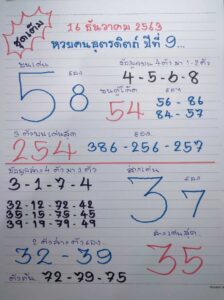 ชุดเต็ม
16 ธันวาคม 2563
หวยคนสุตรดิตถ์ ปีที่ 9...
บนเด่น รอง
5 8
ข้อมูลบน 4 ตัว มา 1-2 ตัว
4-5-6-8
บนคู่โต๊ด
54
56-86
84-57
3 ตัวบนเด่นสุด
254
386-256-257
ข้อมูลล่าง 4 ตัว มา 1 ตัว
3-1-7-4
32-12-72-42
35-15-75-45
39-19-79-49
ล่างเด่น รอง
3 7
2 ตัวล่าง รอง
32-39
ตัวตัน 72-79-75
ล่างเด่นสุด
35